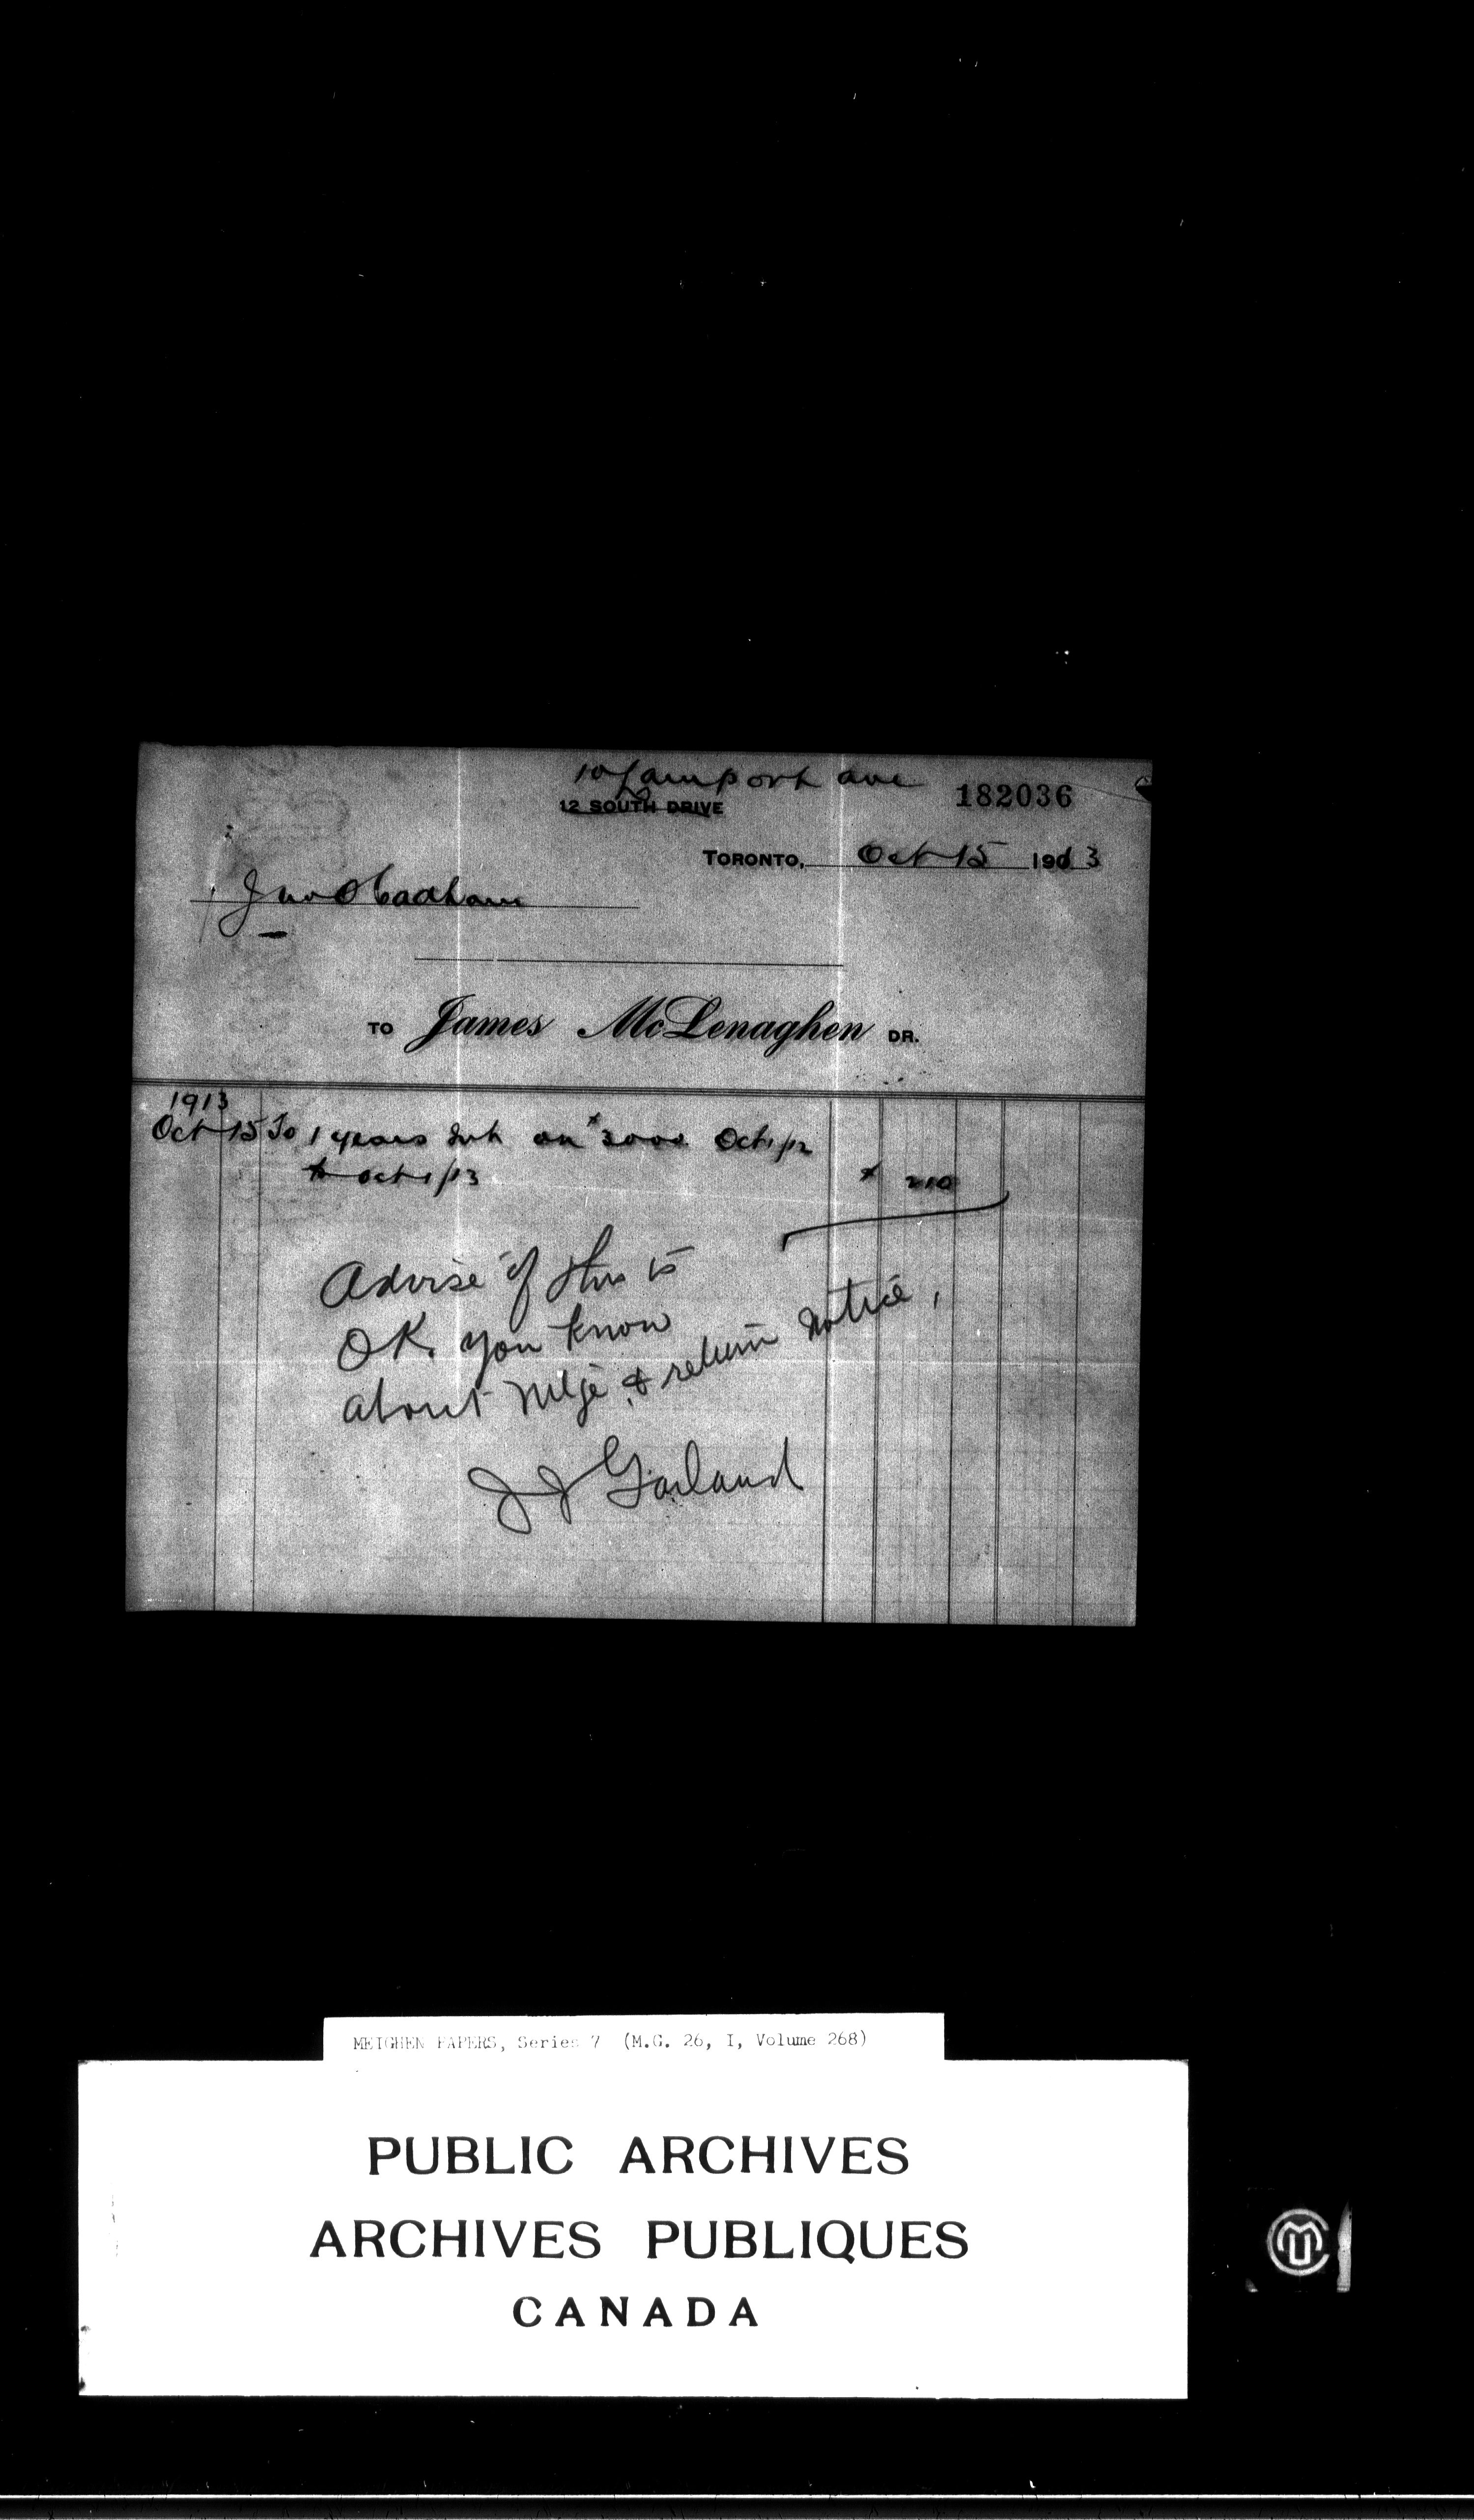 10 Lamport ave
12 SOUTH DRIVE
182036
TORONTO, Oct 15 1913
Jno O Cadham
TO James McLenaghen DR.
1913
Oct 15 To 1 years Int on $3000 Oct 1/12
to Oct 1/13 $ 210
Advise if this is
OK. you know
about Mtge & return notice,
JJ Garland
MEIGHEN PAPERS, Series 7 (M.G. 26, I, Volume 268)
PUBLIC ARCHIVES
ARCHIVES PUBLIQUES
CANADA